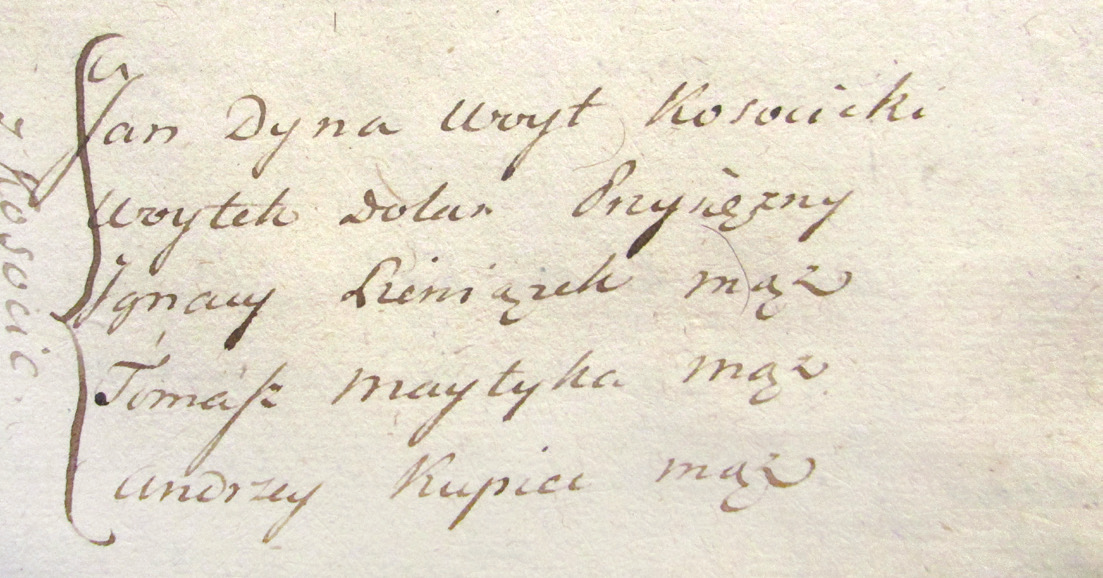 z Kosocic
Jan Dyna Woyt Kosocicki
Woytek Dolar Przysięzny
Ignacy Pieniązek mąz
Tomasz Maytyka mąz
Andrzey Kupiec mąz